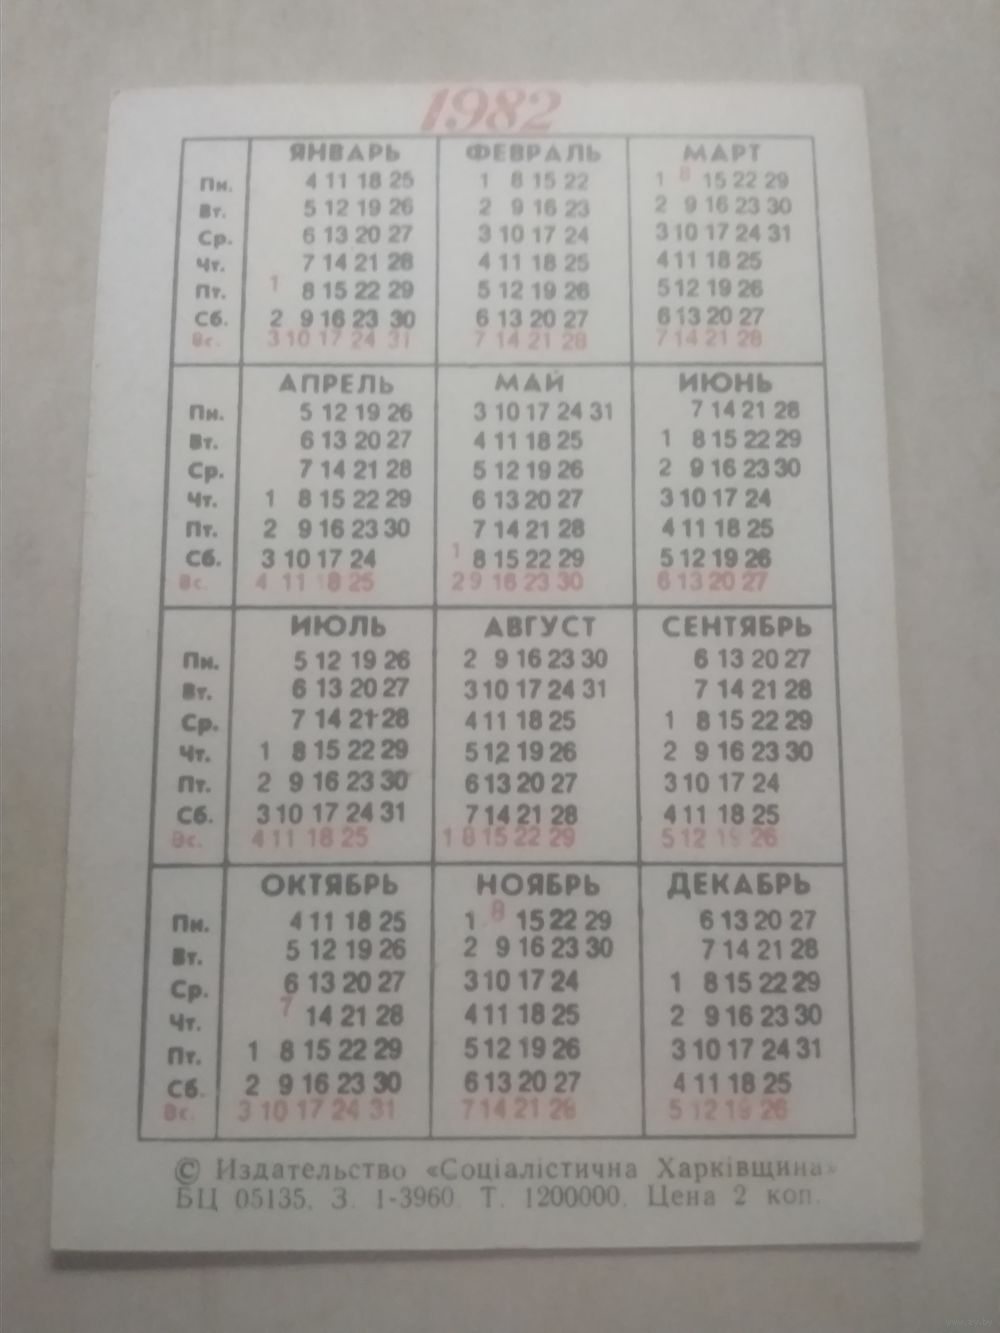 1982
ЯНВАРЬ ФЕВРАЛЬ МАРТ
Пн. 4 11 18 25 1 8 15 22 1 8 15 22 29
Вт. 5 12 19 26 2 9 16 23 2 9 16 23 30
Ср. 6 13 20 27 3 10 17 24 3 10 17 24 31
Чт. 7 14 21 28 4 11 18 25 4 11 18 25
Пт. 1 8 15 22 29 5 12 19 26 5 12 19 26
Сб. 2 9 16 23 30 6 13 20 27 6 13 20 27
Вс. 3 10 17 24 31 7 14 21 28 7 14 21 28
АПРЕЛЬ МАЙ ИЮНЬ
Пн. 5 12 19 26 3 10 17 24 31 7 14 21 28
Вт. 6 13 20 27 4 11 18 25 1 8 15 22 29
Ср. 7 14 21 28 5 12 19 26 2 9 16 23 30
Чт. 1 8 15 22 29 6 13 20 27 3 10 17 24
Пт. 2 9 16 23 30 7 14 21 28 4 11 18 25
Сб. 3 10 17 24 1 8 15 22 29 5 12 19 26
Вс. 4 11 18 25 2 9 16 23 30 6 13 20 27
ИЮЛЬ АВГУСТ СЕНТЯБРЬ
Пн. 5 12 19 26 2 9 16 23 30 6 13 20 27
Вт. 6 13 20 27 3 10 17 24 31 7 14 21 28
Ср. 7 14 21 28 4 11 18 25 1 8 15 22 29
Чт. 1 8 15 22 29 5 12 19 26 2 9 16 23 30
Пт. 2 9 16 23 30 6 13 20 27 3 10 17 24
Сб. 3 10 17 24 31 7 14 21 28 4 11 18 25
Вс. 4 11 18 25 1 8 15 22 29 5 12 19 26
ОКТЯБРЬ НОЯБРЬ ДЕКАБРЬ
Пн. 4 11 18 25 1 8 15 22 29 6 13 20 27
Вт. 5 12 19 26 2 9 16 23 30 7 14 21 28
Ср. 6 13 20 27 3 10 17 24 1 8 15 22 29
Чт. 7 14 21 28 4 11 18 25 2 9 16 23 30
Пт. 1 8 15 22 29 5 12 19 26 3 10 17 24 31
Сб. 2 9 16 23 30 6 13 20 27 4 11 18 25
Вс. 3 10 17 24 31 7 14 21 28 5 12 19 26
© Издательство «Соціалістична Харківщина»
БЦ 05135. З. 1-3960. Т. 1200000. Цена 2 коп.